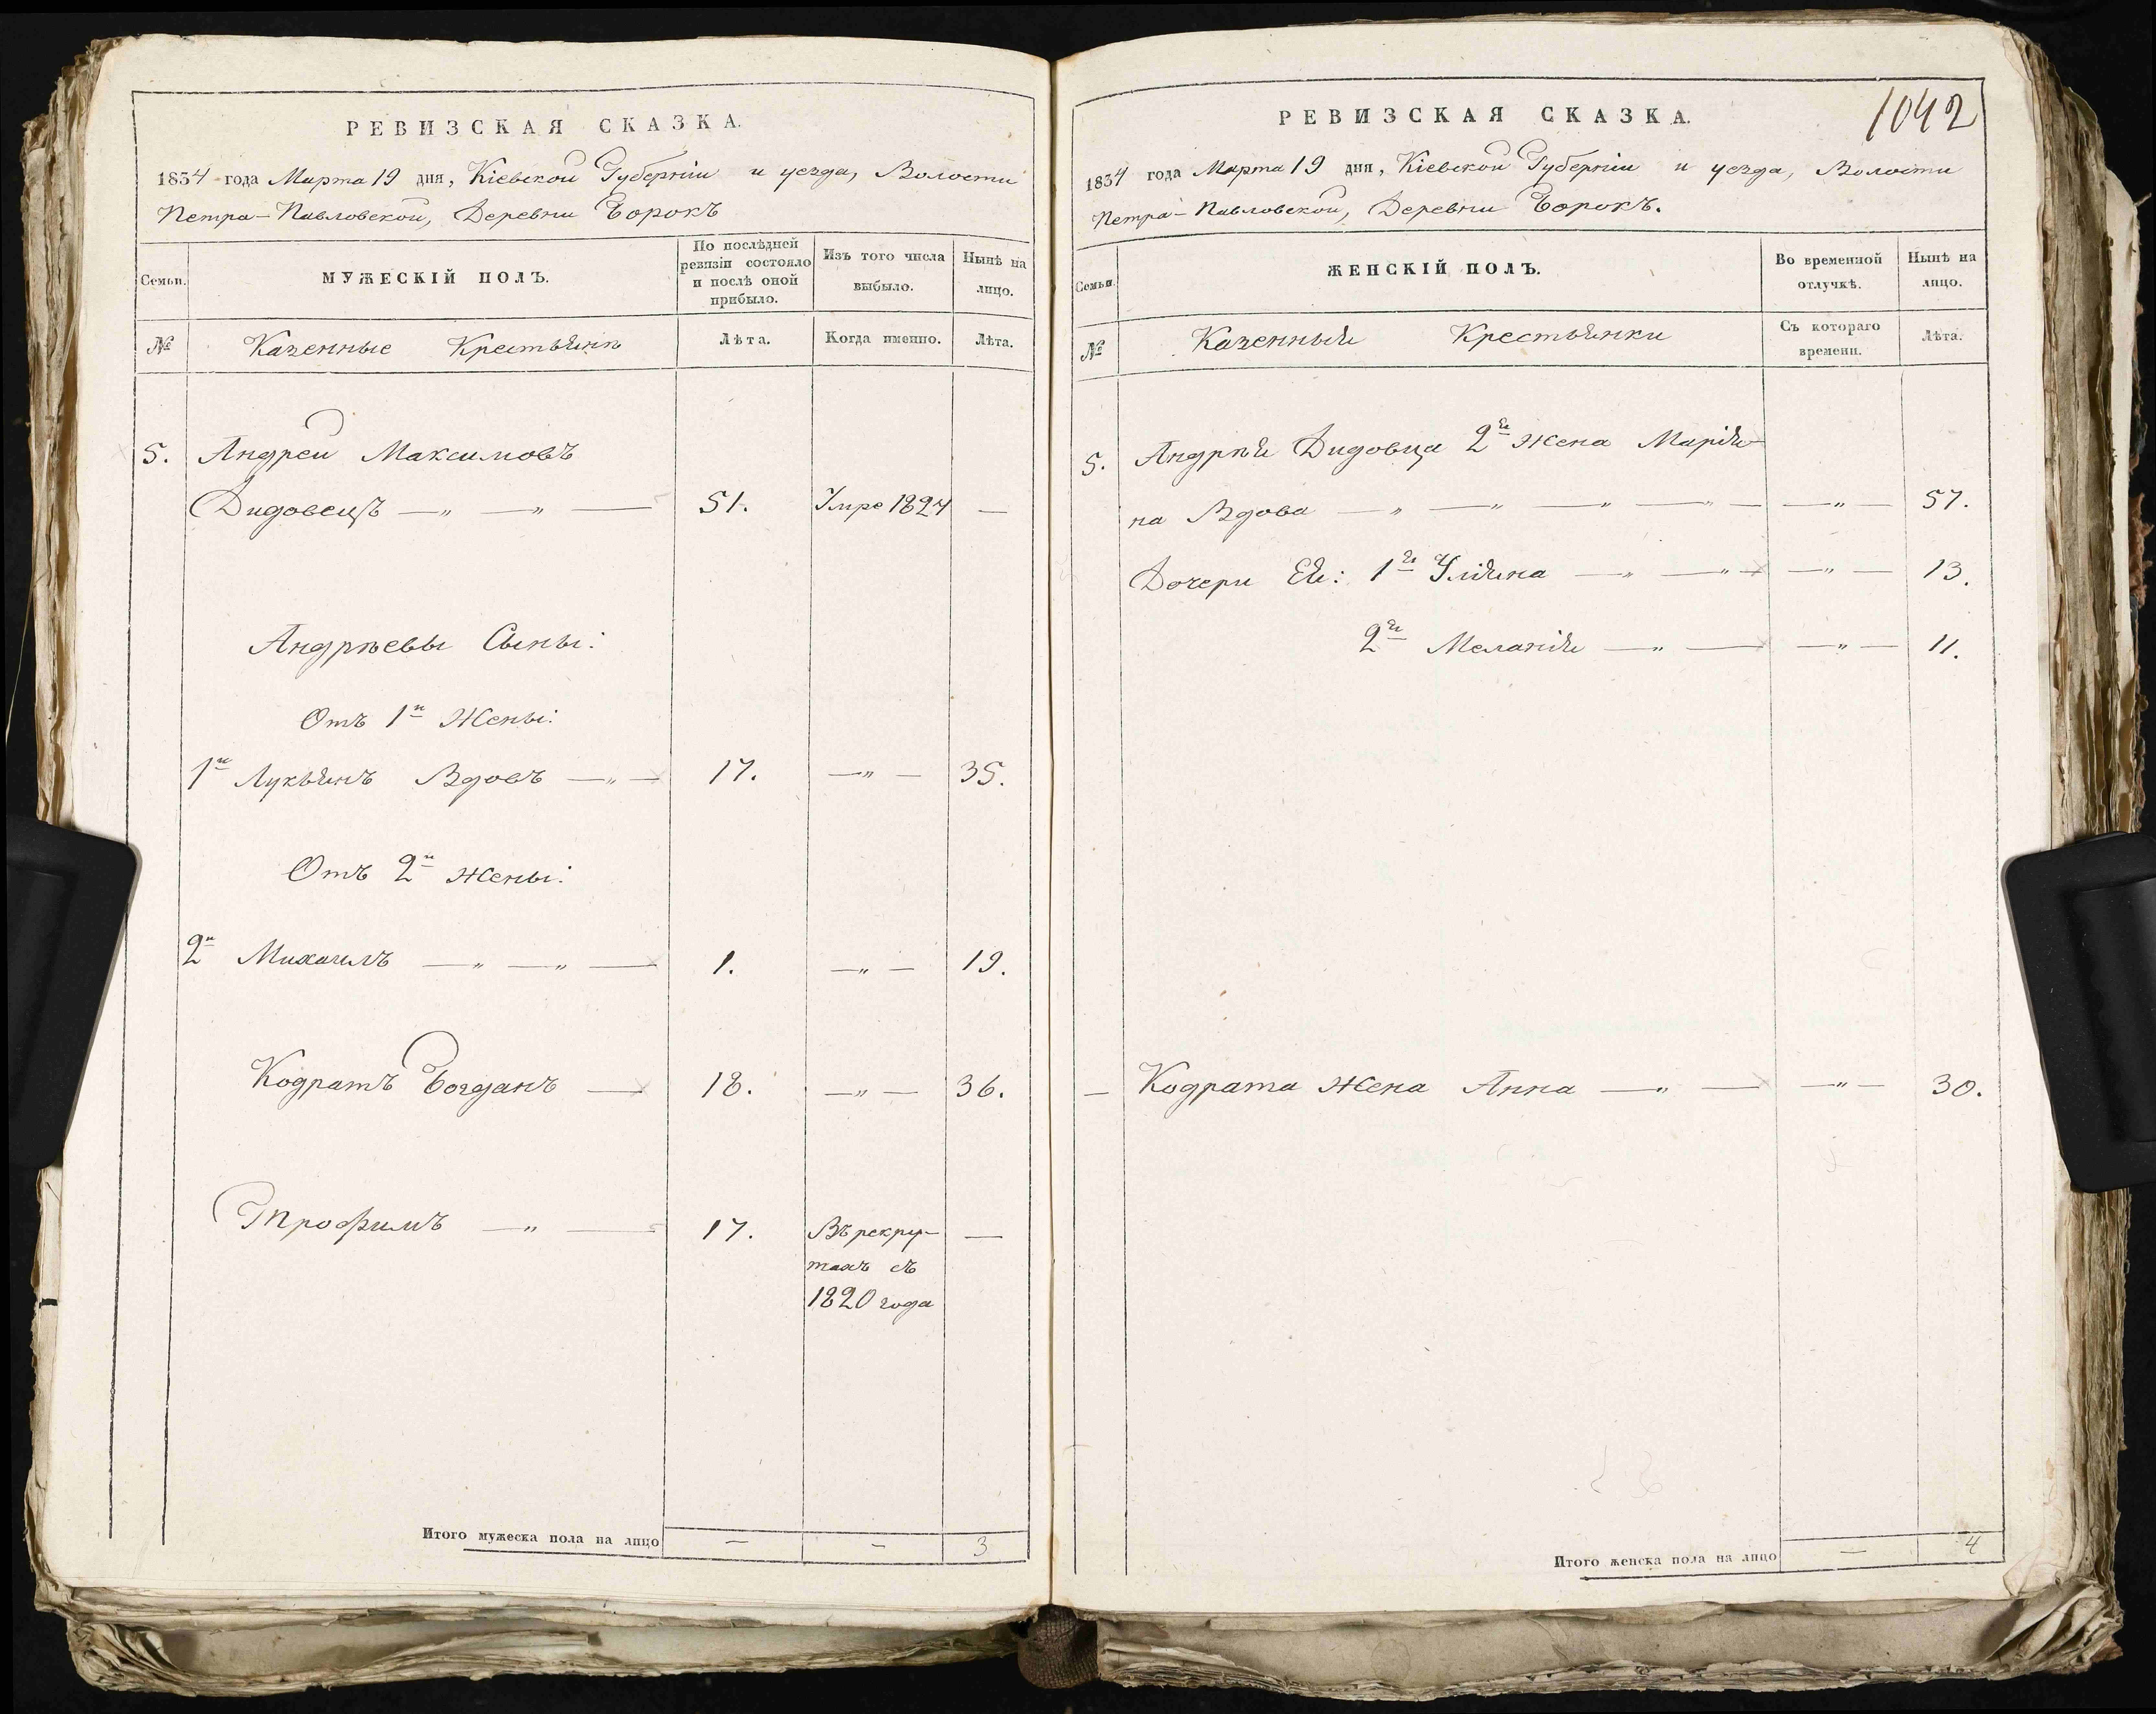 РЕВИЗСКАЯ СКАЗКА.
1834 года Марта 19 дня, Кіевской Губерніи и уезда, Волости
Петра-Павловской, Деревни Борокъ
Семьи.
МУЖЕСКІЙ ПОЛЪ.
По послѣдней
ревизіи состояло
и послѣ оной
прибыло.
Изъ того числа
выбыло.
Нынѣ на
лицо.
№
Казенные Крестьяне
Лѣта.
Когда именно.
Лѣта.
5. Андрей Максимовъ
Дидовецъ — „ — „ — 51. Умре 1824 —
Андрѣевы Сыны:
Отъ 1й Жены:
1й Лукьянъ Вдовъ — „ — 17. — „ — 35.
Отъ 2й жены:
2й Михаилъ — „ — „ — 1. — „ — 19.
Кодратъ Богданъ — 18. — „ — 36.
Трофимъ — „ — 17. Въ рекру-
тахъ съ
1820 года
—
Итого мужеска пола на лицо — — 3
РЕВИЗСКАЯ СКАЗКА.
1042
1834 года Марта 19 дня, Кіевской Губерніи и уезда, Волости
Петра-Павловской, Деревни Борокъ.
Семьи.
ЖЕНСКІЙ ПОЛЪ.
Во временной
отлучкѣ.
Нынѣ на
лицо.
№
Казенныя Крестьянки
Съ котораго
времени.
Лѣта.
5. Андрѣя Дидовца 2я жена Марія-
на Вдова — „ — „ — „ — „ — — „ — 57.
Дочери Ея: 1я Уліяна — „ — „ — — „ — 13.
2я Меланія — „ — — „ — 11.
— Кодрата жена Анна — „ — — „ — 30.
Итого женска пола на лицо — 4